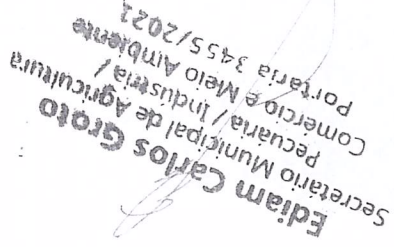 Ediam Carlos Groto
Secretário Municipal de Agricultura
Pecuária / Indústria /
Comércio e Meio Ambiente
Portaria 3455/2021